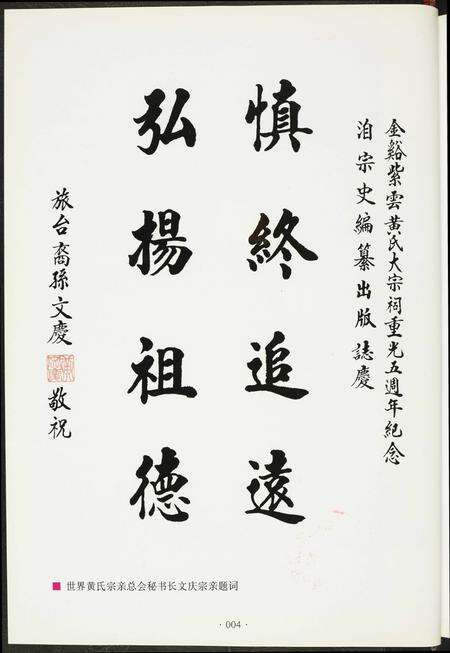 金谿紫雲黃氏大宗祠重光五週年紀念
洎宗史編纂出版誌慶
慎終追遠
弘揚祖德
旅台裔孫文慶
敬祝
世界黄氏宗亲总会秘书长文庆宗亲题词
· 004 ·